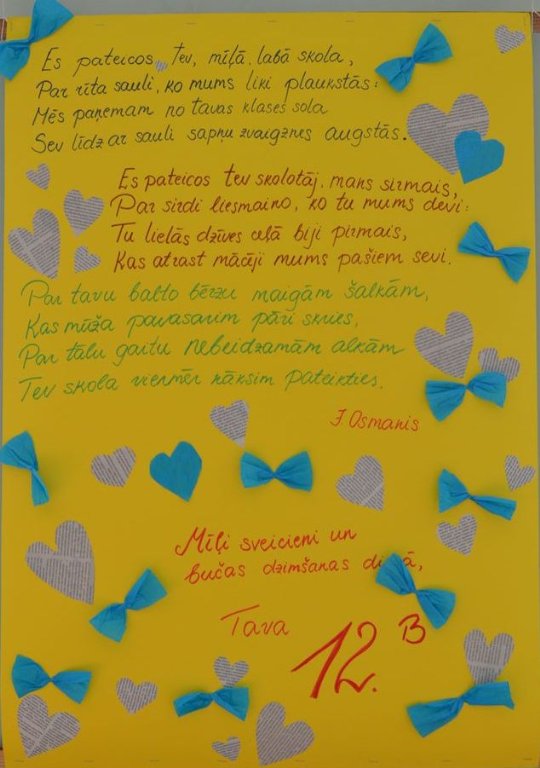 Es pateicos tev, mīļā, labā skola,
Par rīta sauli, ko mums liki plaukstās:
Mēs paņemam no tavas klases sola
Sev līdz ar sauli sapņu zvaigznes augstās.
Es pateicos tev skolotāj, mans sirmais,
Par sirdi liesmaino, ko tu mums devi:
Tu lielās dzīves ceļā biji pirmais,
Kas atrast mācīji mums pašiem sevi.
Par tavu balto bērzu maigām šalkām,
Kas mūža pavasarim pāri skries,
Par tālu gaitu nebeidzamām alkām
Tev skola vienmēr nāksim pateikties.
J Osmanis
Mīļi sveicieni un
bučas dzimšanas
Tava
12. B